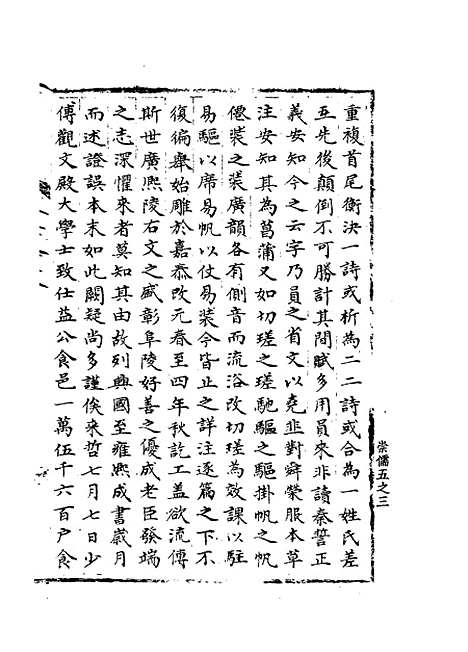 重複首尾衡決一詩或析為二二詩或合為一姓氏差
互先後顛倒不可勝計其間賦多用員來非讀秦誓正
義安知今之云字乃員之省文以堯韭對舜榮服本草
注安知其為菖蒲又如切瑳之瑳馳驅之驅掛帆之帆
僊裝之裝廣韻各有側音而流俗改切瑳為效課以駐
易驅以席易帆以仗易裝今皆正之詳注逐篇之下不
復徧舉始雕於嘉泰改元春至四年秋訖工蓋欲流傳
斯世廣熙陵右文之盛彰阜陵好善之優成老臣發端
之志深懼來者莫知其由故列興國至雍熙成書歲月
而述證誤本末如此闕疑尚多謹俟來哲七月七日少
傅觀文殿大學士致仕益公食邑一萬伍千六百戶食
崇儒五之三